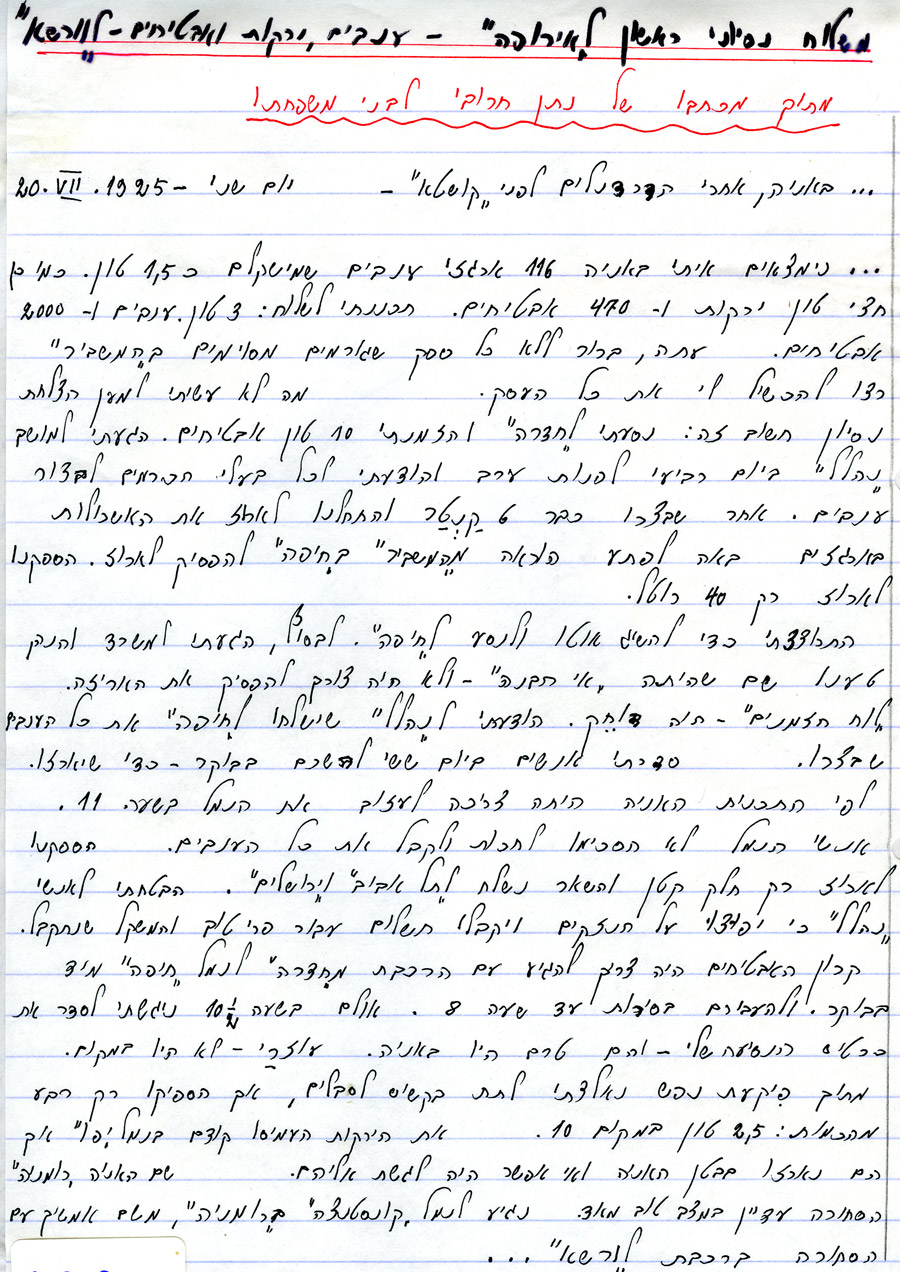 משלוח נסיוני ראשון ל"אירופה" - ענבים, ירקות ואבטיחים - ל"וורשא"
מתוך מכתבו של נתן חרובי לבני משפחתו
... באניה, אחרי הדרדנלים לפני "קושטא" - יום שני - 20.VII.1925
... נימצאים איתי באניה 116 ארגזי ענבים שמישקלם כ 1,5 טון. כמו כן
חצי טון ירקות ו- 470 אבטיחים. תכננתי לשלוח: 3 טון ענבים ו- 2000
אבטיחים. עתה, ברור ללא כל ספק שגורמים מסוימים ב"המשביר"
רצו להכשיל לי את כל העסק. מה לא עשיתי למען הצלחת
נסיון חשוב זה: נסעתי ל"חדרה" והזמנתי 10 טון אבטיחים. הגעתי למושב
"נהלל" ביום רביעי לפנות ערב והודעתי לכל בעלי הכרמים לבצור
ענבים. אחר שבצרו כבר 6 קַנְטָר והתחלנו לארוז את האשכולות
בארגזים באה לפתע הוראה מ"המשביר" ב"חיפה" להפסיק לארוז. הספקנו
לארוז רק 40 רוטל.
התרוצצתי כדי להשיג אוטו ולנסע ל"חיפה". לבסוף, הגעתי למשרד והנה
טענו שם שהיתה "אי הבנה" - ולא היה צורך להפסיק את האריזה.
"לוח הזמנים" - היה דוחק. הודעתי ל"נהלל" שישלחו ל"חיפה" את כל הענבים
שבצרו. סדרתי אנשים ביום ששי להשכם בבוקר - כדי שיארזו.
לפי התכנית האניה היתה צריכה לעזוב את הנמל בשעה 11.
אנשי הנמל לא הסכימו לחכות ולקבל את כל הענבים. הספקנו
לארוז רק חלק קטן והשאר נשלח ל"תל אביב" ו"ירושלים". הבטחתי לאנשי
"נהלל" כי יפוצו על הנזקים ויקבלו תשלום עבור פרי טוב והמשקל שנתקבל.
קרון האבטיחים היה צריך להגיע עם הרכבת מ"חדרה" לנמל "חיפה" מיד
בבוקר. ולהעבירם בסירות עד שעה 8. אולם בשעה 10½ ניגשתי לסדר את
כרטיס הנסיעה שלי - והם טרם היו באניה. עוזרי - לא היו במקום.
מתוך פיקעת נפש נאלצתי לתת בקשיש לסבלים, אך הספיקו רק רבע
מהכמות: 2,5 טון במקום 10. את הירקות העמיסו קודם בנמל "יפו" אך
הם נארזו בבטן האניה ואי אפשר היה לגשת אליהם. שם האניה "רומניה"
הסחורה עדיין במצב טוב מאד. נגיע לנמל "קונסטנצה" ב"רומניה", משם אמשיך עם
הסחורה ברכבת ל"ורשא" ...